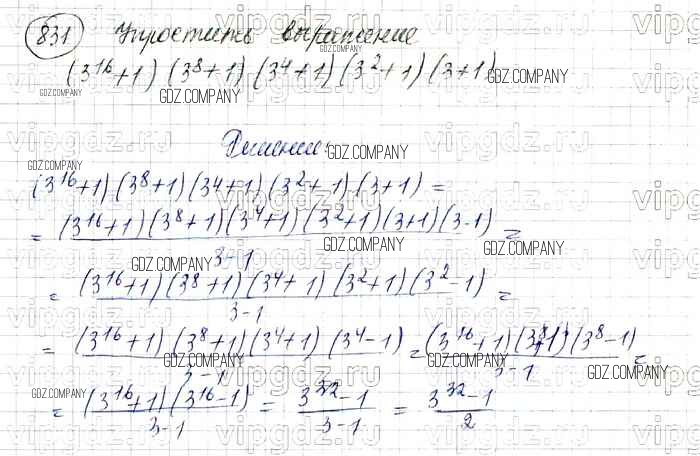 831 Упростить выражение
(3¹⁶+1)(3⁸+1)(3⁴+1)(3²+1)(3+1)
Решение:
(3¹⁶+1)(3⁸+1)(3⁴+1)(3²+1)(3+1) =
= (3¹⁶+1)(3⁸+1)(3⁴+1)(3²+1)(3+1)(3-1) / 3-1 =
= (3¹⁶+1)(3⁸+1)(3⁴+1)(3²+1)(3²-1) / 3-1 =
= (3¹⁶+1)(3⁸+1)(3⁴+1)(3⁴-1) / 3-1 = (3¹⁶+1)(3⁸+1)(3⁸-1) / 3-1 =
= (3¹⁶+1)(3¹⁶-1) / 3-1 = 3³²-1 / 3-1 = 3³²-1 / 2
GDZ.COMPANY
vipgdz.ru